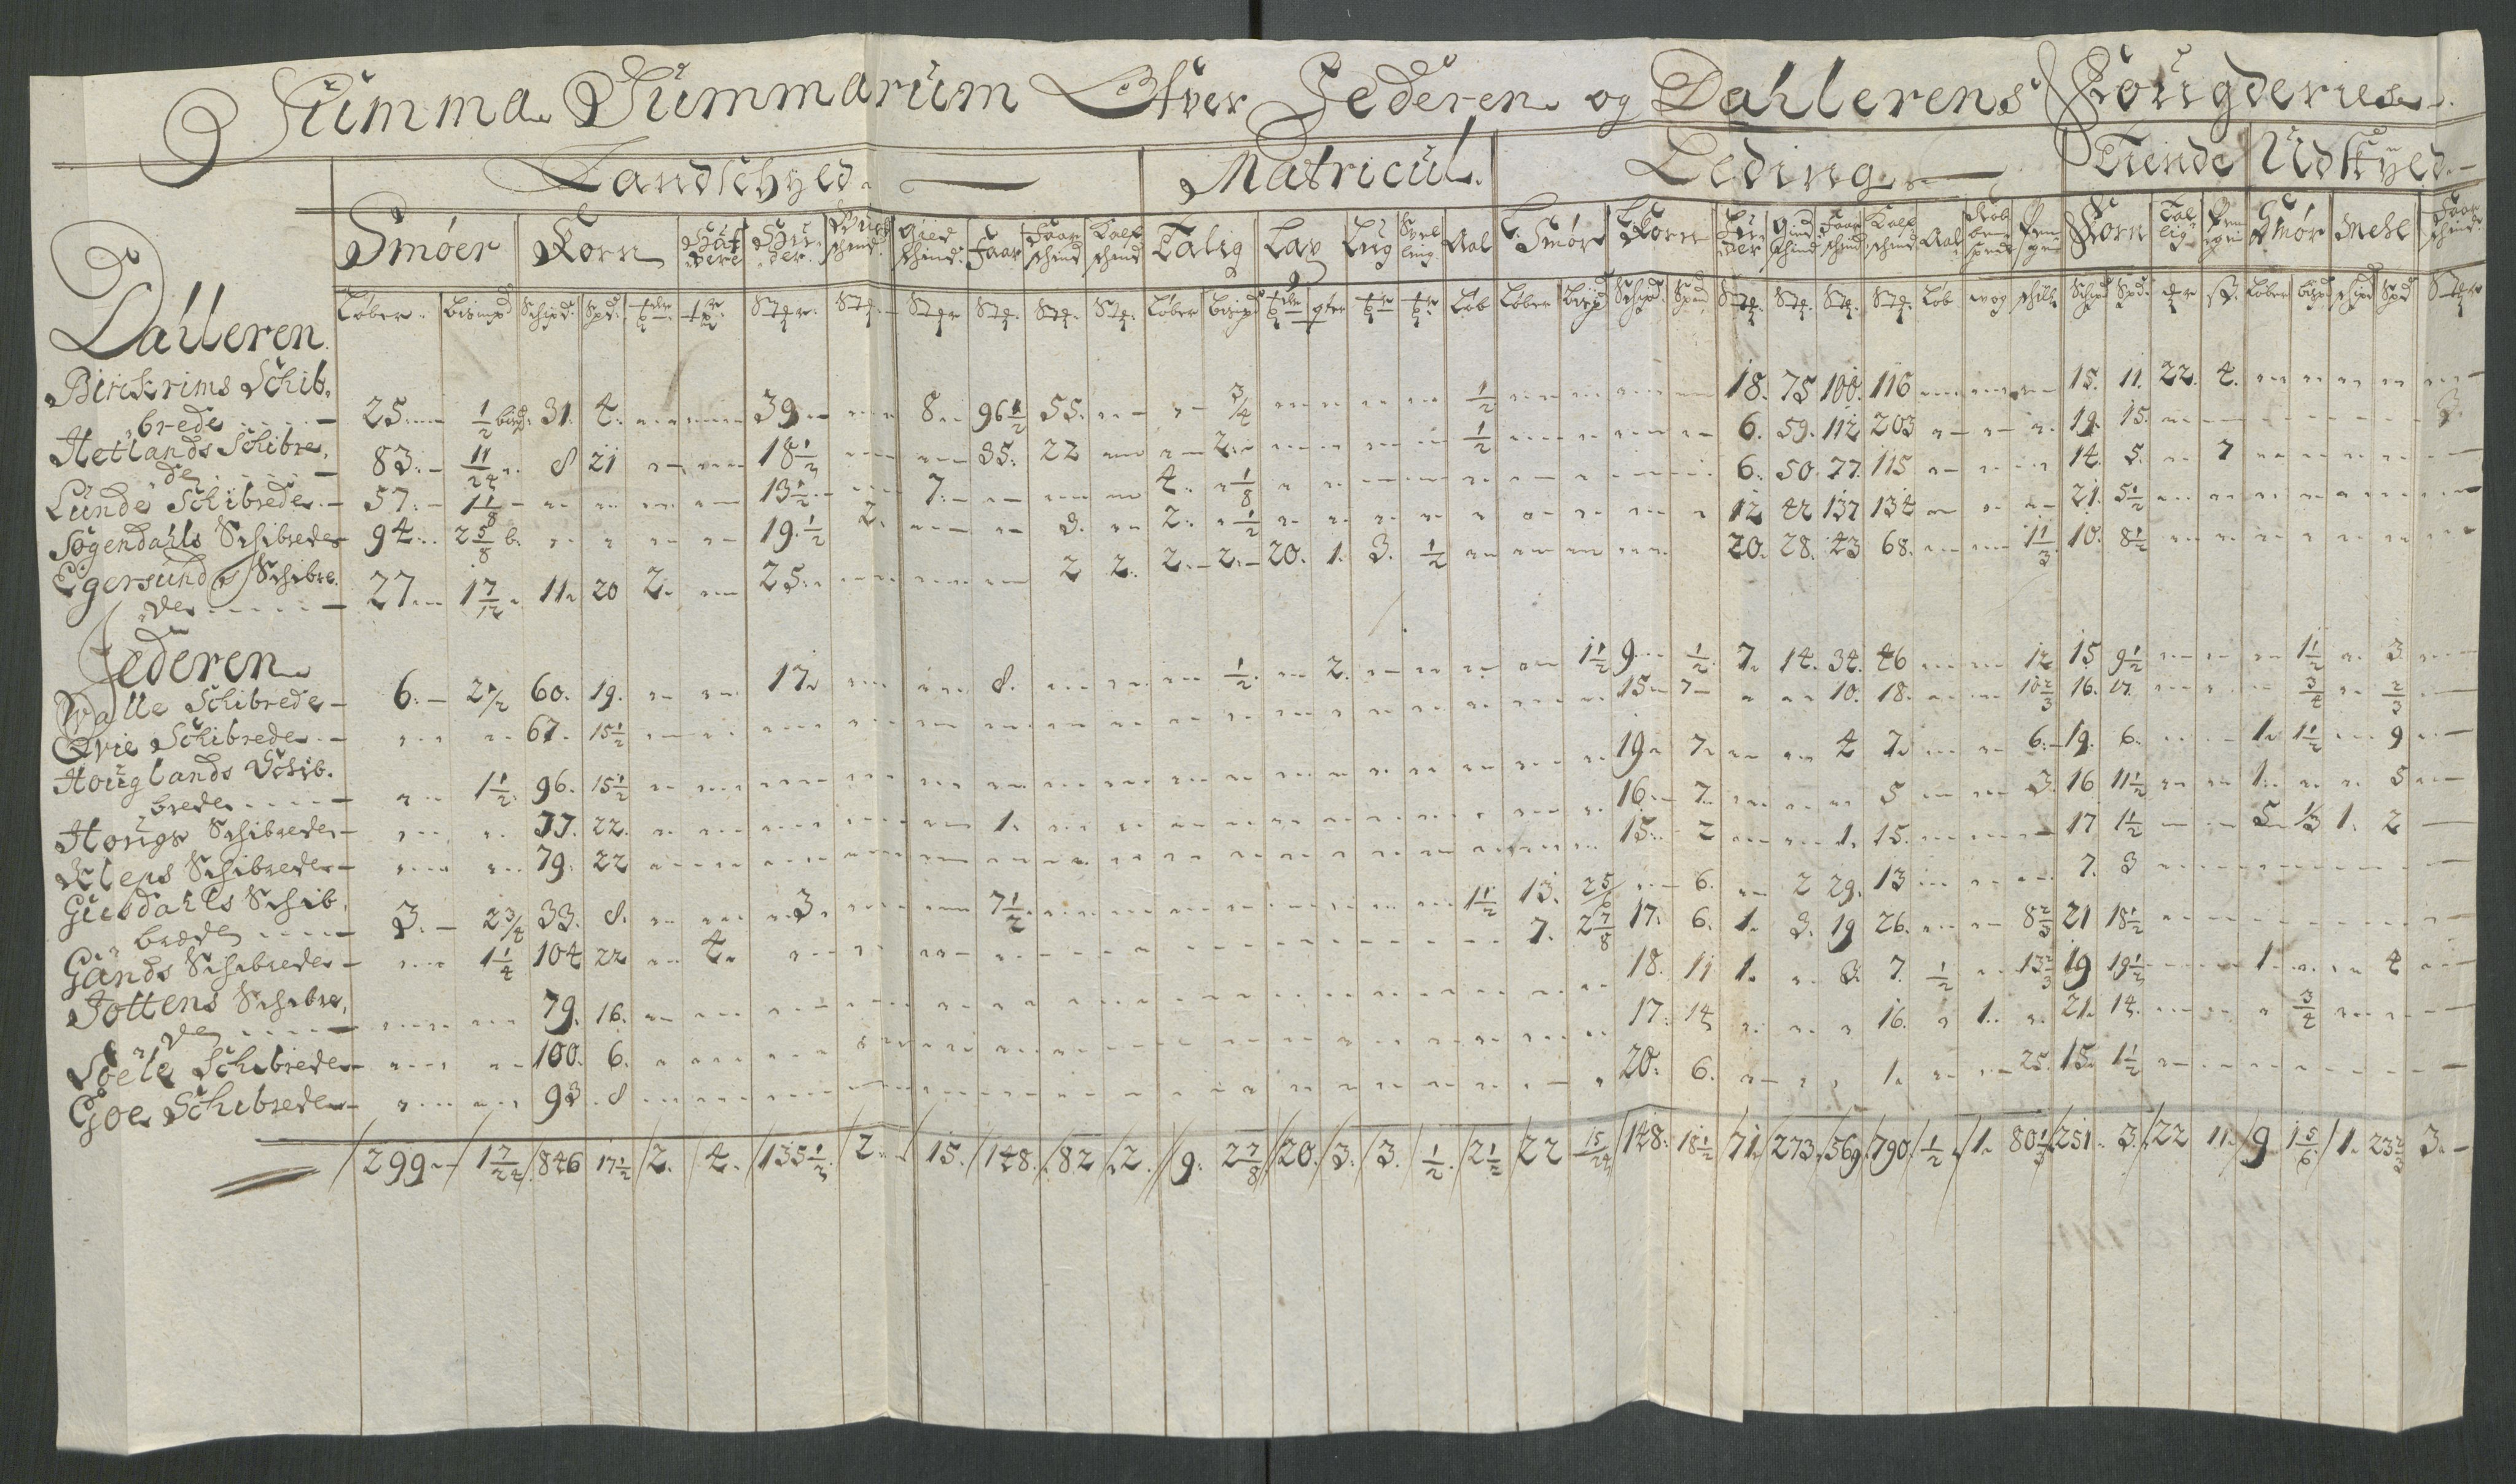 Summa Summarum Ofver Jederen og Dahlerens Fougderies
Landschyld Matricul Leding Tiende Udskyld
Smøer Korn Huder Faar Faar schind Kalf schind Talig Lax Aal Smør Korn Huder Gied schind Faar schind Kalf schind Aal Korn Tallig Smør Meel Faar schind
Løber. bismpd Schipd. Spd. Løber bismpd Løb Løber bispd Schipd. Spd Løb vog schill Schpd Spd. Løber bispd schpd Spd
Dahleren
Birckrims Schib,
brede 25. 1/2 bispd. 31. 4. 39 8. 96 1/2 55. 3/4 1/2 18. 75 100. 116 15. 11. 22. 4.
Hetlands Schibre,
de 83. 11/24 8 21 18 1/2 35. 22 2. 1/2 6. 59. 112 203 19. 15. 3.
Lunde Schibrede 57. 1 1/8 13 1/2 7. 4. 1/8 6. 50. 77. 115 14. 5. 7
Sogendahls Schibrede 94. 2 5/8 b. 19. 1/2 2. 3. 2. 1/2 12 42 137 134 21. 5 1/2
Egersunds Schibre,
de 27. 1 7/12 11. 20 2. 25. 2 2. 2. 2. 20. 1. 3. 1/2 20. 28. 43 68. 1 1/3 10. 8 1/2
Jederen
Walle Schibrede 6. 2 1/2 60. 19. 17. 8. 1/2. 2. 1 1/2 9. 1/2 7. 14. 34. 46 12 15 9 1/2 1 1/2 3
Qvie Schibrede 67. 15 1/2 15 7 10. 18. 10 2/3 16. 17. 3/4 2/3
Houglands Schib,
brede 1 1/2. 96. 15 1/2 19. 7. 4 7. 6. 19. 6. 1. 1 1/2 9
Hougs Schibrede 77. 22. 1. 16. 7. 5 3. 16 11 1/2 1. 5
Kleps Schibrede 79. 22 15. 2 1. 15. 17 1 1/2 5 1/3 1. 2
Giesdahls Schib,
brede 3. 2 3/4 33. 8. 3. 7 1/2 1 1/2 13. 2 5/6 6. 2 29. 13 7. 3
Gands Schibrede 1 1/4 104 22 4. 7. 2 7/8 17. 6. 1. 3. 19 26. 8 2/3 21 18 1/2
Jottens Schibre,
de 79. 16. 18. 11 1. 3. 7. 1/2 13 2/3 19 19 1/2 1. 4
Soele Schibrede 100. 6. 17. 14 16. 1. 21. 14. 3/4
Goe Schibrede 93 8 20. 6. 1. 25. 15. 1 1/2
299. 1 7/24 846 17 1/2 2. 4. 135 1/2 2. 15. 148. 82 2. 9. 2 7/8 20. 3. 3. 1/2 2 1/2 22 15/24 148. 18 1/2 71. 273. 569. 790. 1/2 1. 80 1/3 251. 3. 22 11. 9 1 5/6 1. 23 2/3 3.